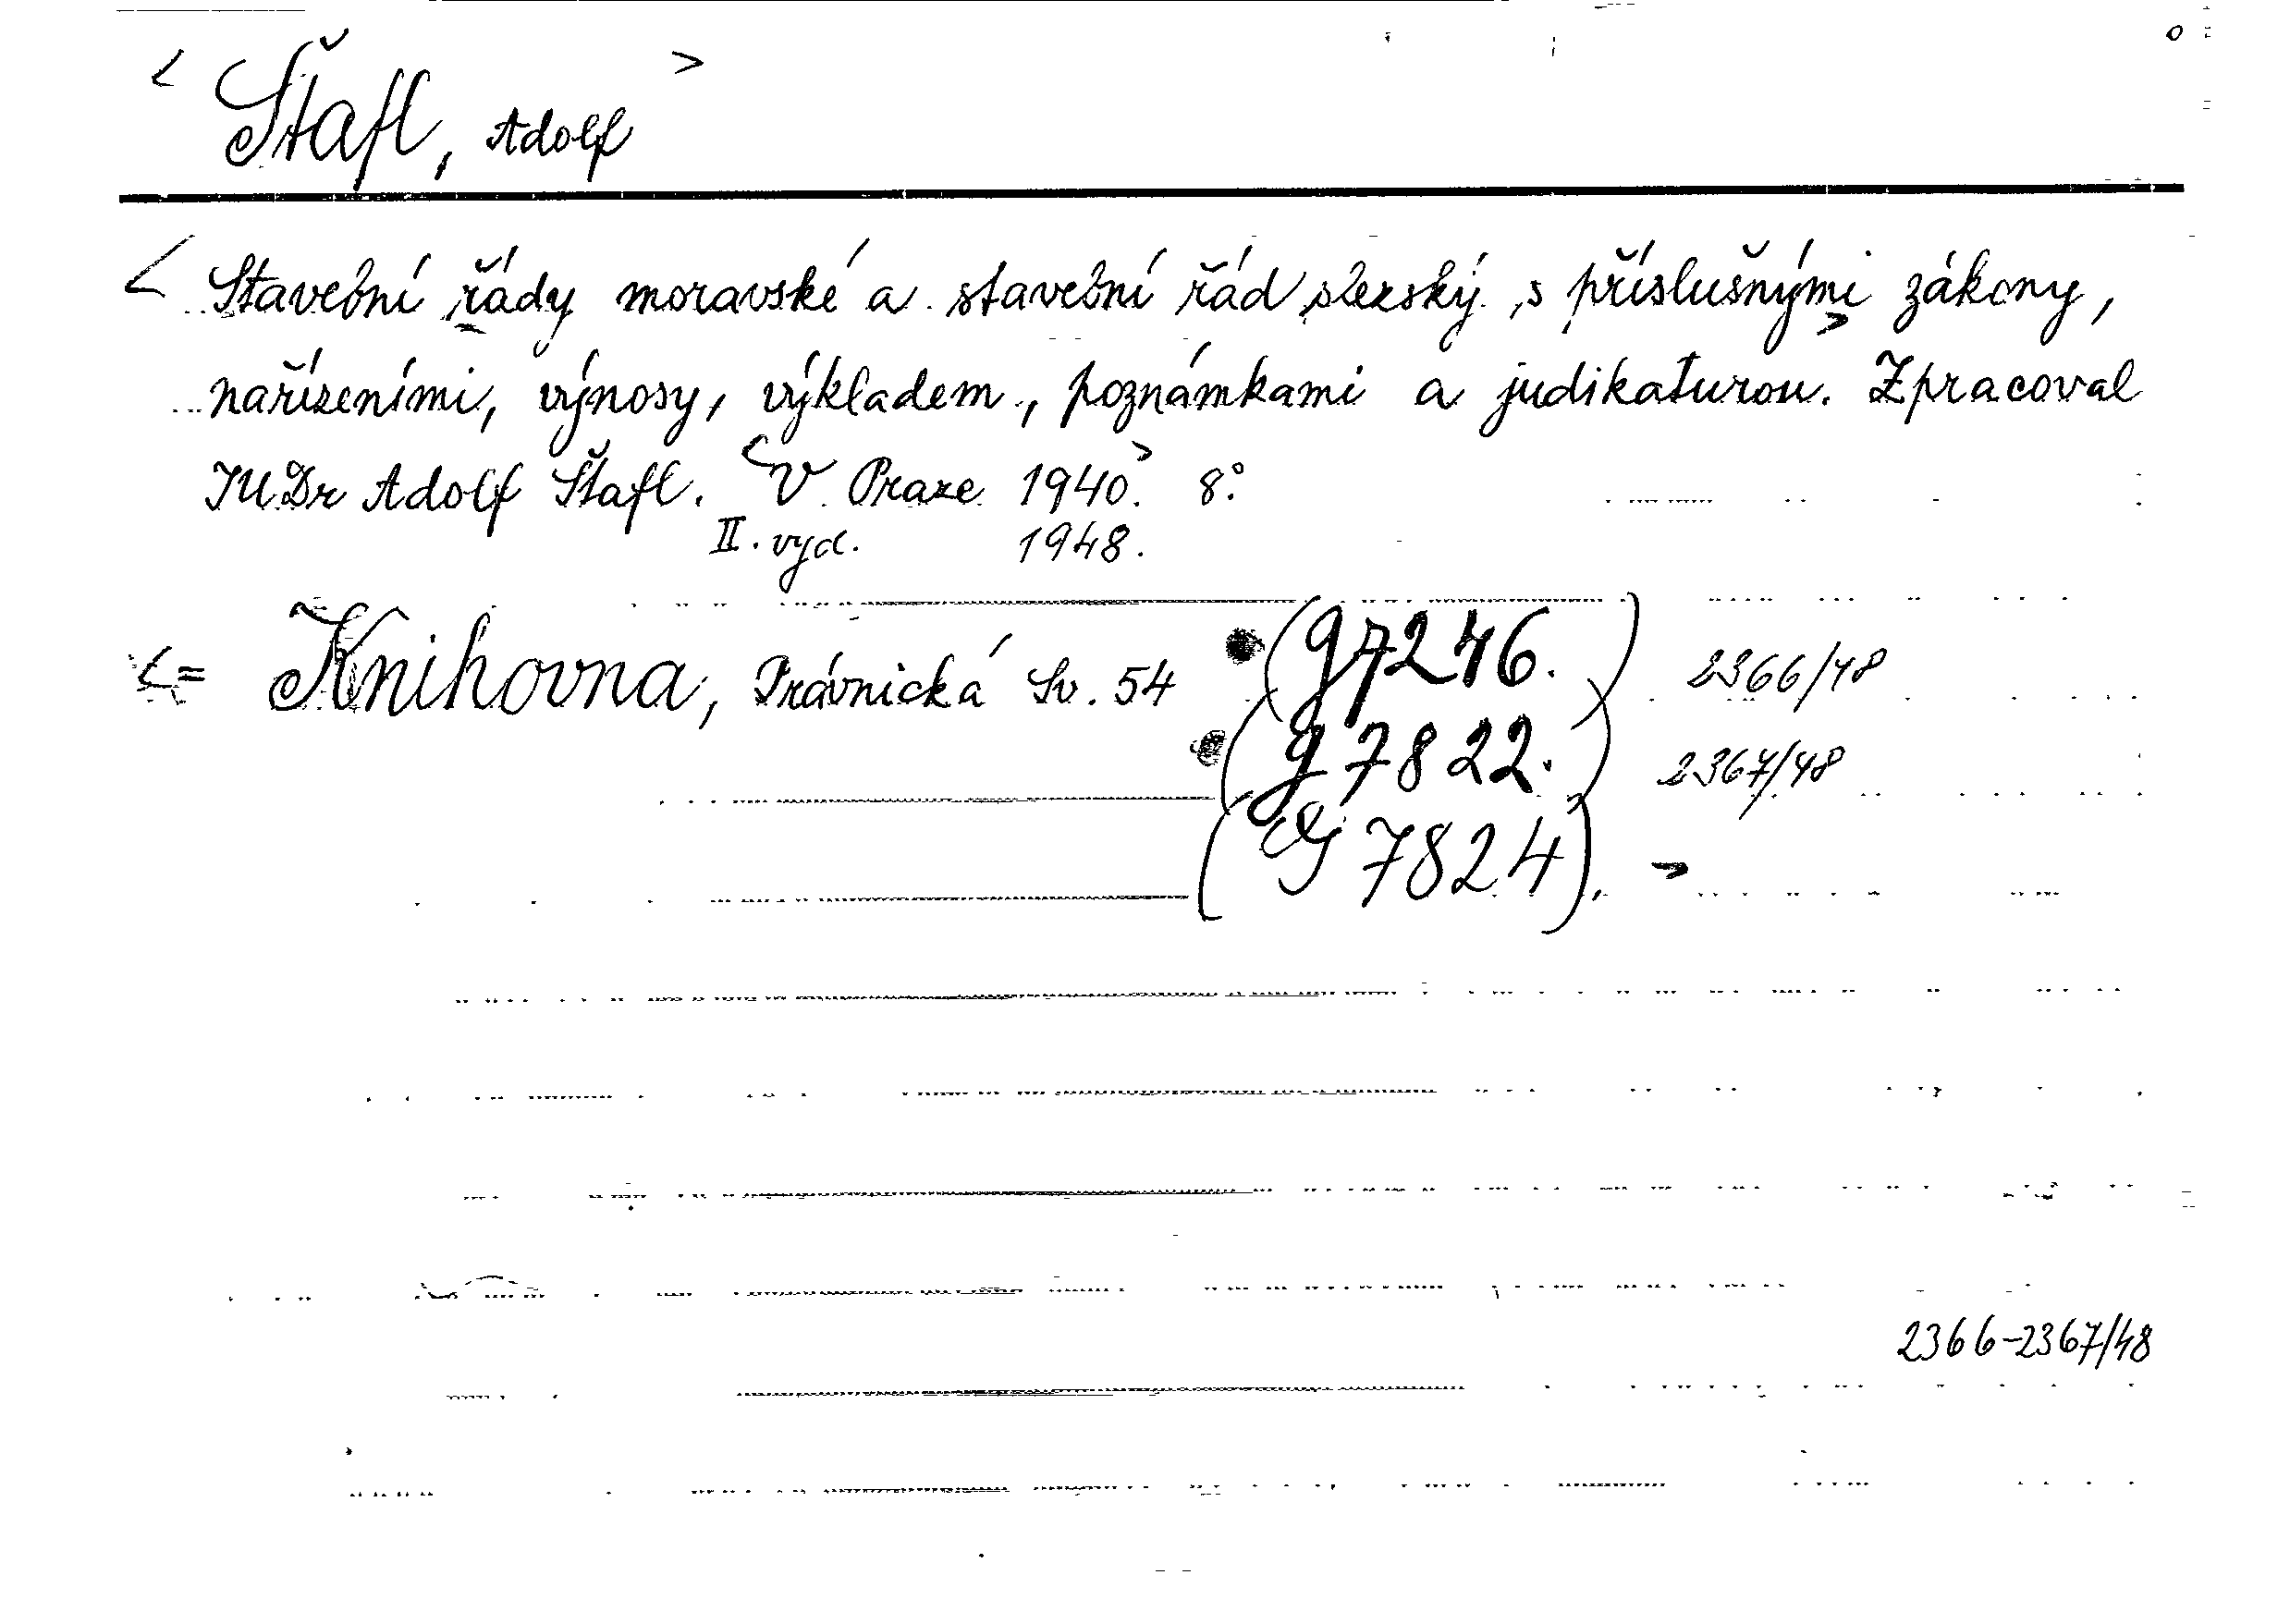 < Štafl, Adolf >
< Stavební řády moravské a stavební řád slezský s příslušnými > zákony,
nařízeními, výnosy, výkladem, poznámkami a judikaturou. Zpracoval
JUDr Adolf Štafl. < V Praze 1940. > 8°.
II. vyd. 1948.
< = Knihovna, Právnická Sv. 54 (g 7246.) 2366/48
(g 7822.) 2367/48
(G 7824). >
2366-2367/48